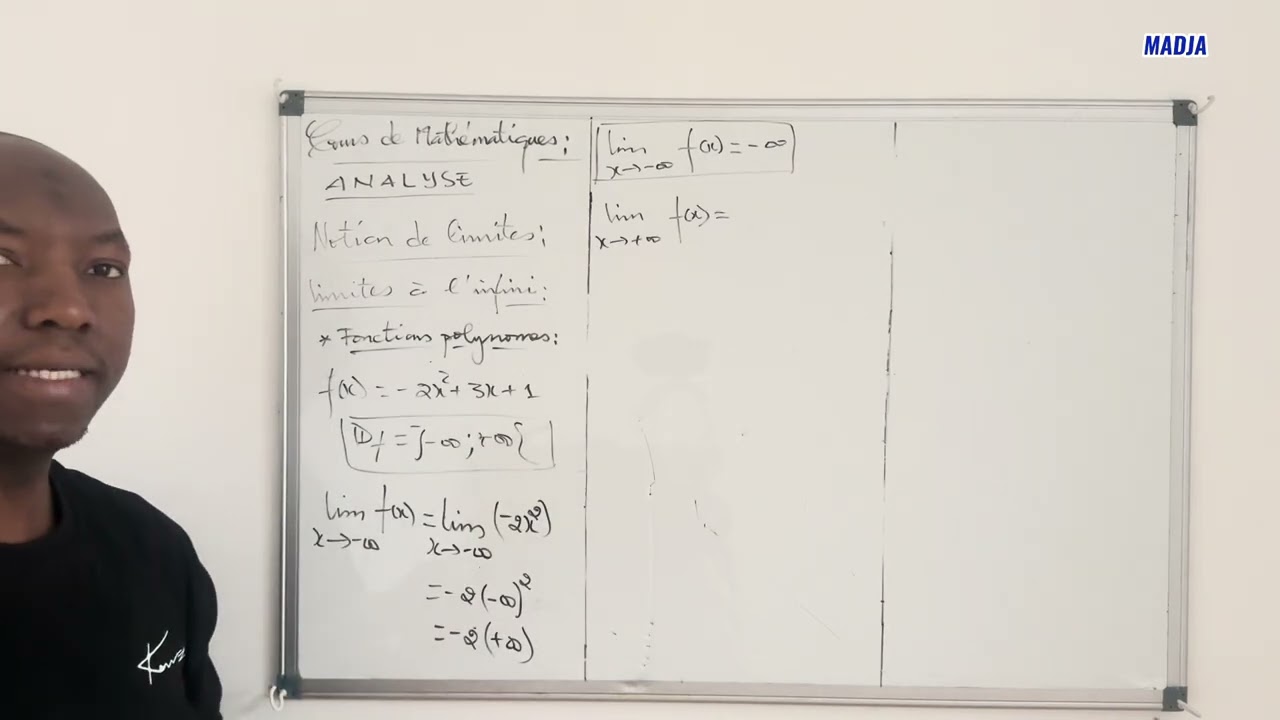 MADJA
Cours de Mathématiques:
ANALYSE
Notion de limites:
limites à l'infini:
* Fonctions polynomes:
f(x) = - 2x² + 3x + 1
Df = ]-∞ ; +∞[
lim f(x) = lim (-2x²)
x→-∞ x→-∞
= -2(-∞)²
= -2(+∞)
lim f(x) = -∞
x→-∞
lim f(x) =
x→+∞